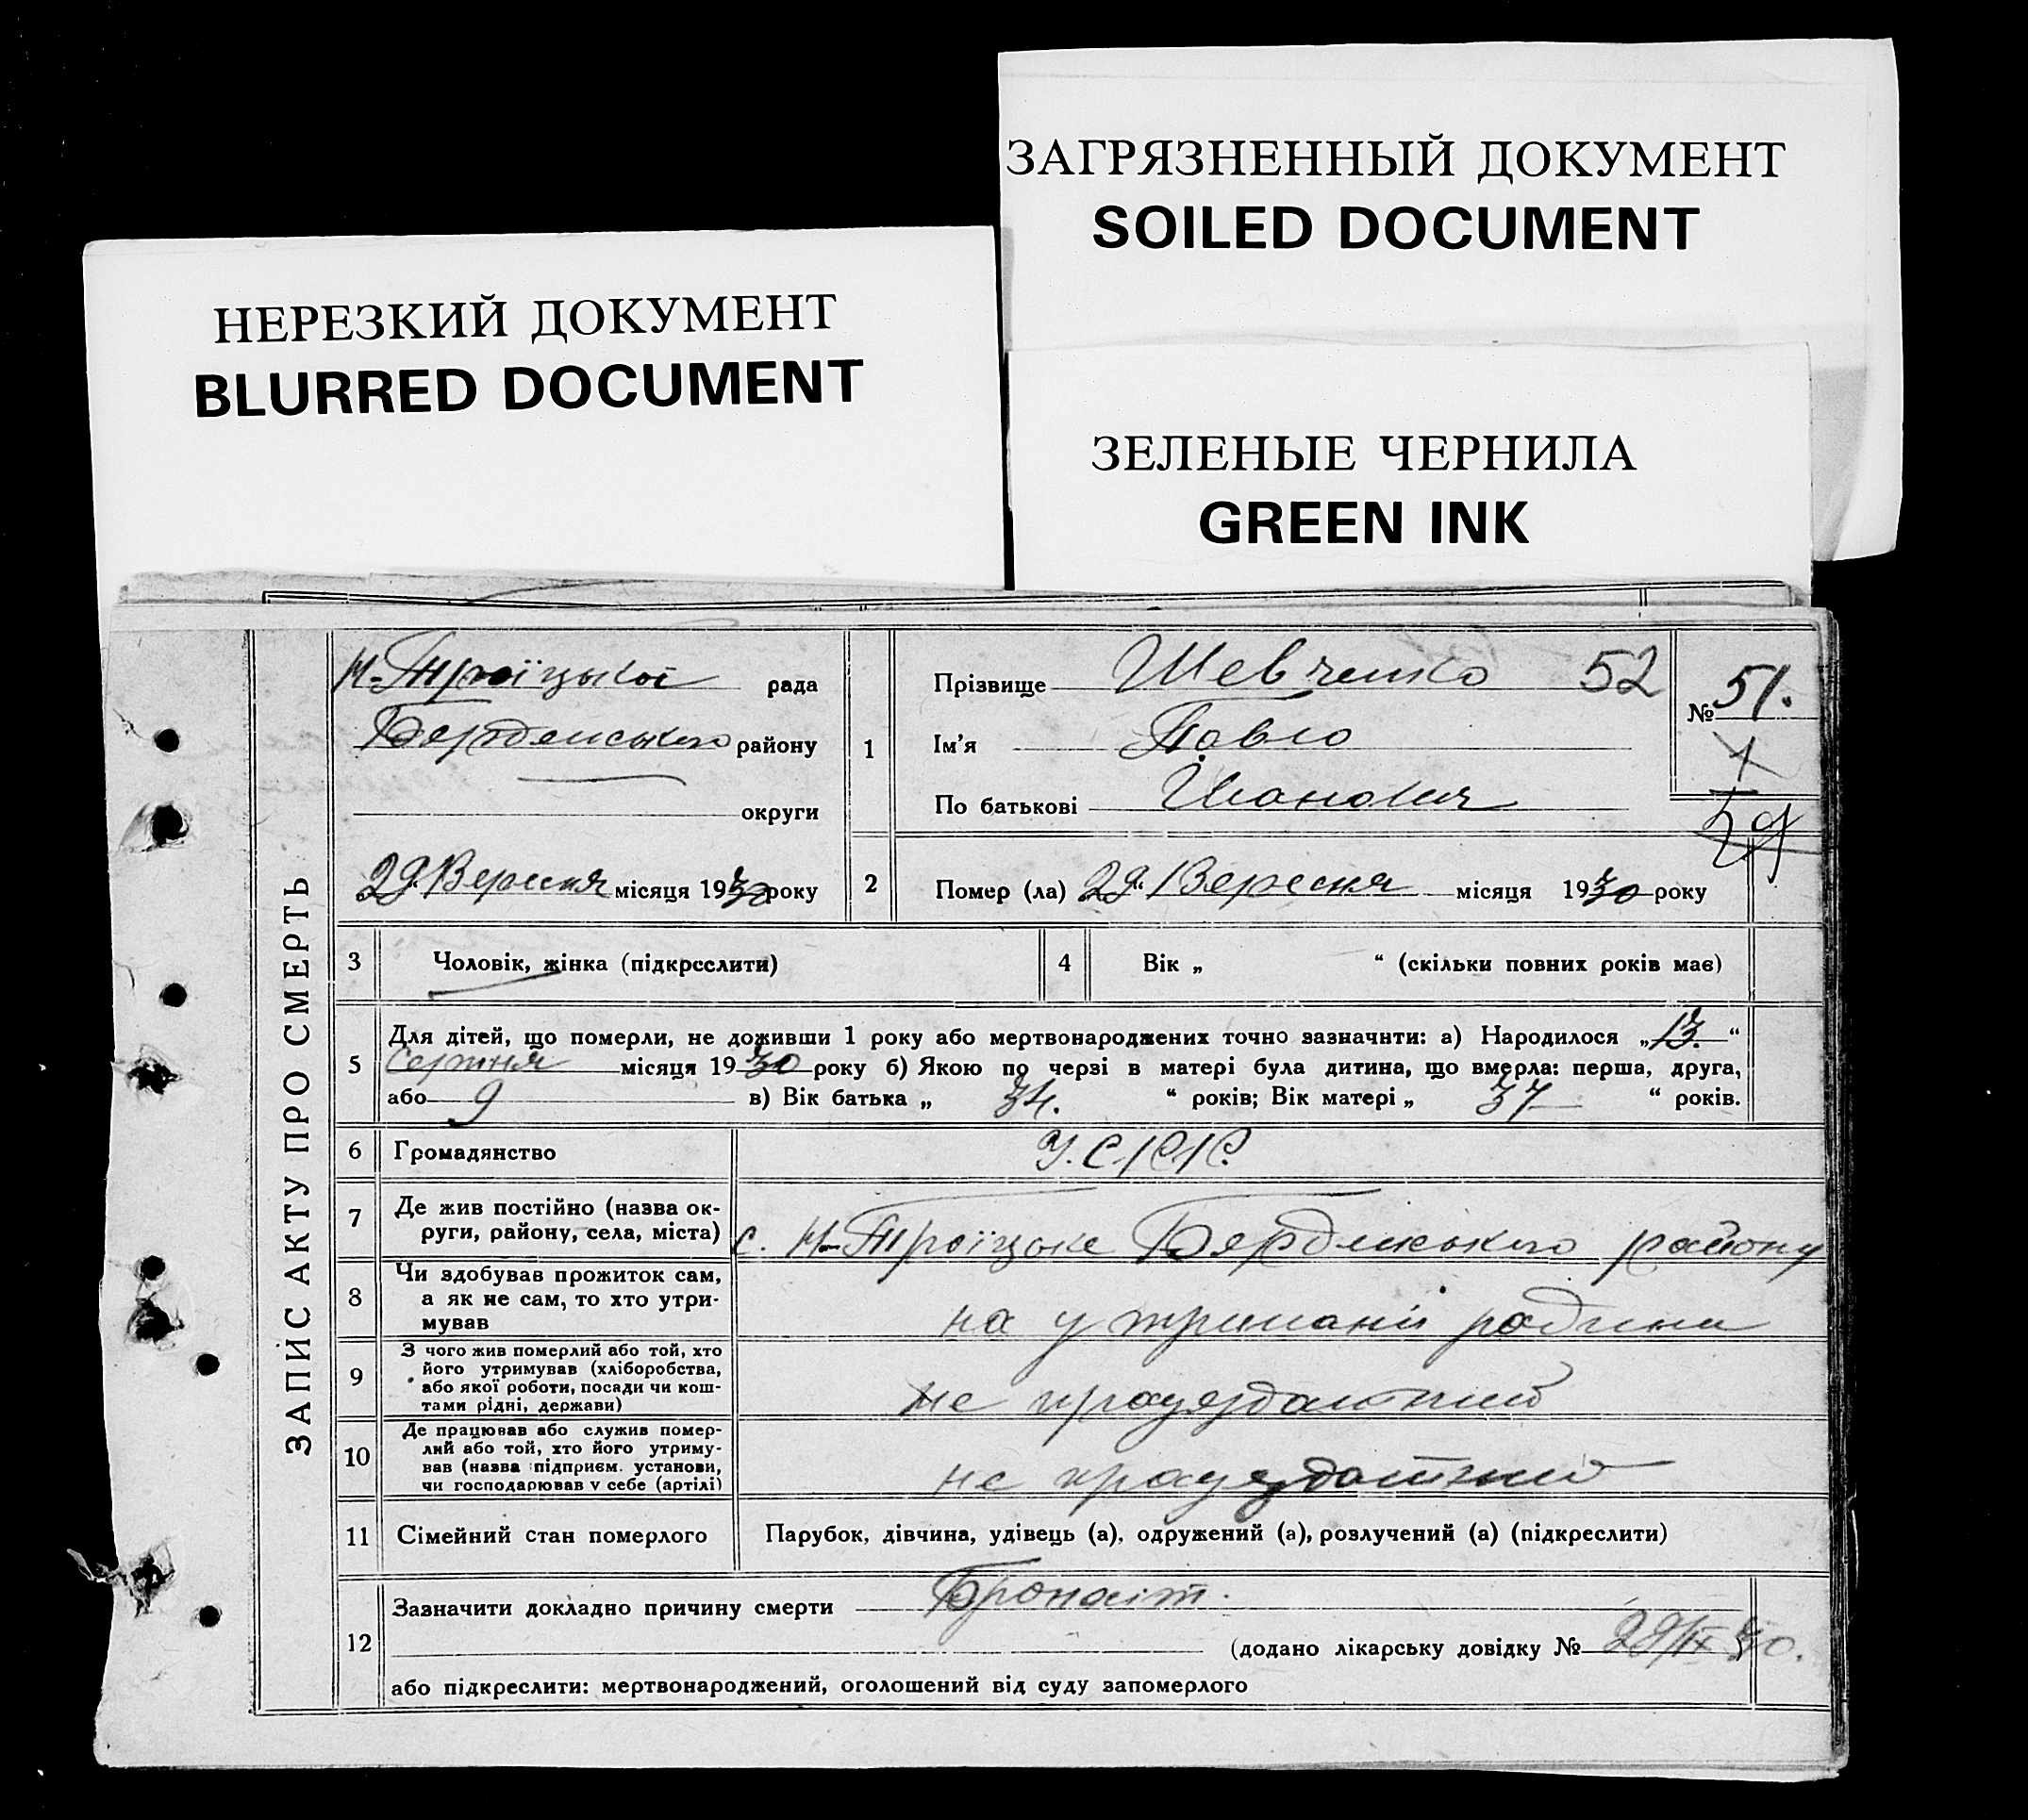 ЗАГРЯЗНЕННЫЙ ДОКУМЕНТ
SOILED DOCUMENT
НЕРЕЗКИЙ ДОКУМЕНТ
BLURRED DOCUMENT
ЗЕЛЕНЫЕ ЧЕРНИЛА
GREEN INK
ЗАПИС АКТУ ПРО СМЕРТЬ
Н-Троїцької рада
Бердянського району
округи
29. Вересня місяця 1930 року
1
Прізвище Шевченко 52
Ім'я Павло
По батькові Іванович
№ 51.
2 Помер (ла) 29. Вересня місяця 1930 року
3 Чоловік, жінка (підкреслити)
4 Вік „ “ (скільки повних років має)
5 Для дітей, що померли, не доживши 1 року або мертвонароджених точно зазначити: а) Народилося „13.“
Серпня місяця 1930 року б) Якою по черзі в матері була дитина, що вмерла: перша, друга,
або 9 в) Вік батька „ 34. “ років; Вік матері „ 37 “ років.
6 Громадянство У.С.Р.Р.
7 Де жив постійно (назва ок-
руги, району, села, міста) с. Н-Троїцьке Бердянського району
8 Чи здобував прожиток сам,
а як не сам, то хто утри-
мував на утриманні родини
9 З чого жив померлий або той, хто
його утримував (хліборобства,
або якої роботи, посади чи кош-
тами рідні, держави) не працездатний
10 Де працював або служив помер-
лий або той, хто його утриму-
вав (назва підприєм. установи,
чи господарював у себе (артілі) не працездатний
11 Сімейний стан померлого Парубок, дівчина, удівець (а), одружений (а), розлучений (а) (підкреслити)
12 Зазначити докладно причину смерти Бронхіт.
(додано лікарську довідку № 29/IX 30.
або підкреслити: мертвонароджений, оголошений від суду запомерлого